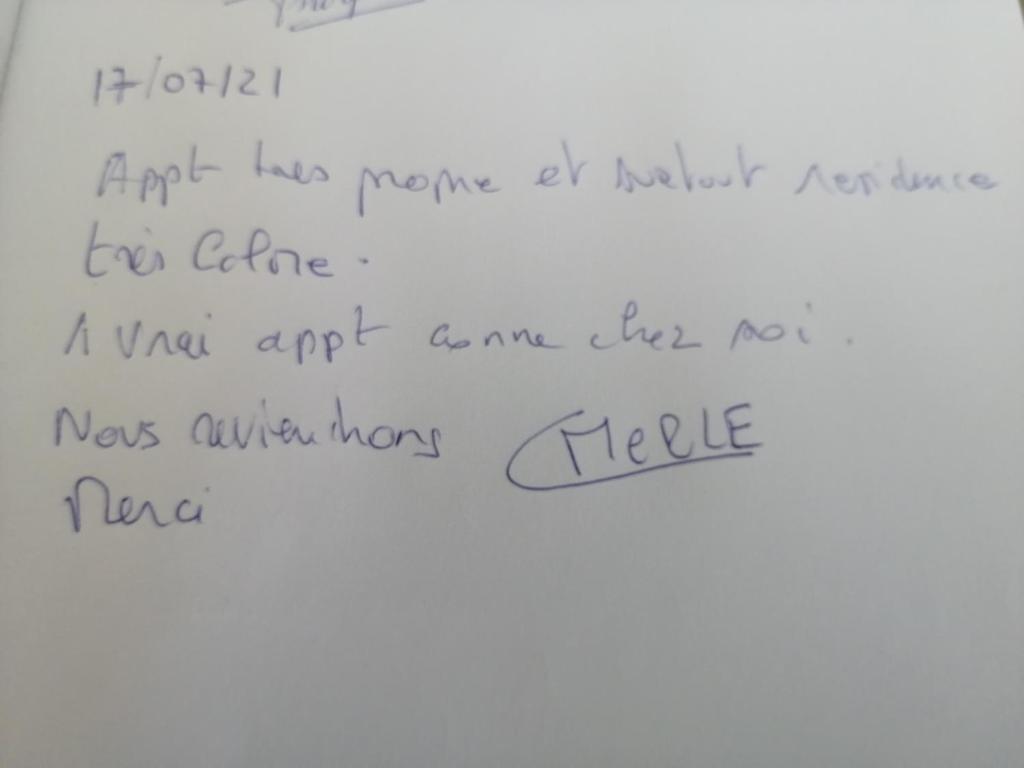 17/07/21
Appt très propre et surtout residence
très Calme.
1 vrai appt comme chez soi.
Nous reviendrons MeRLE
Merci